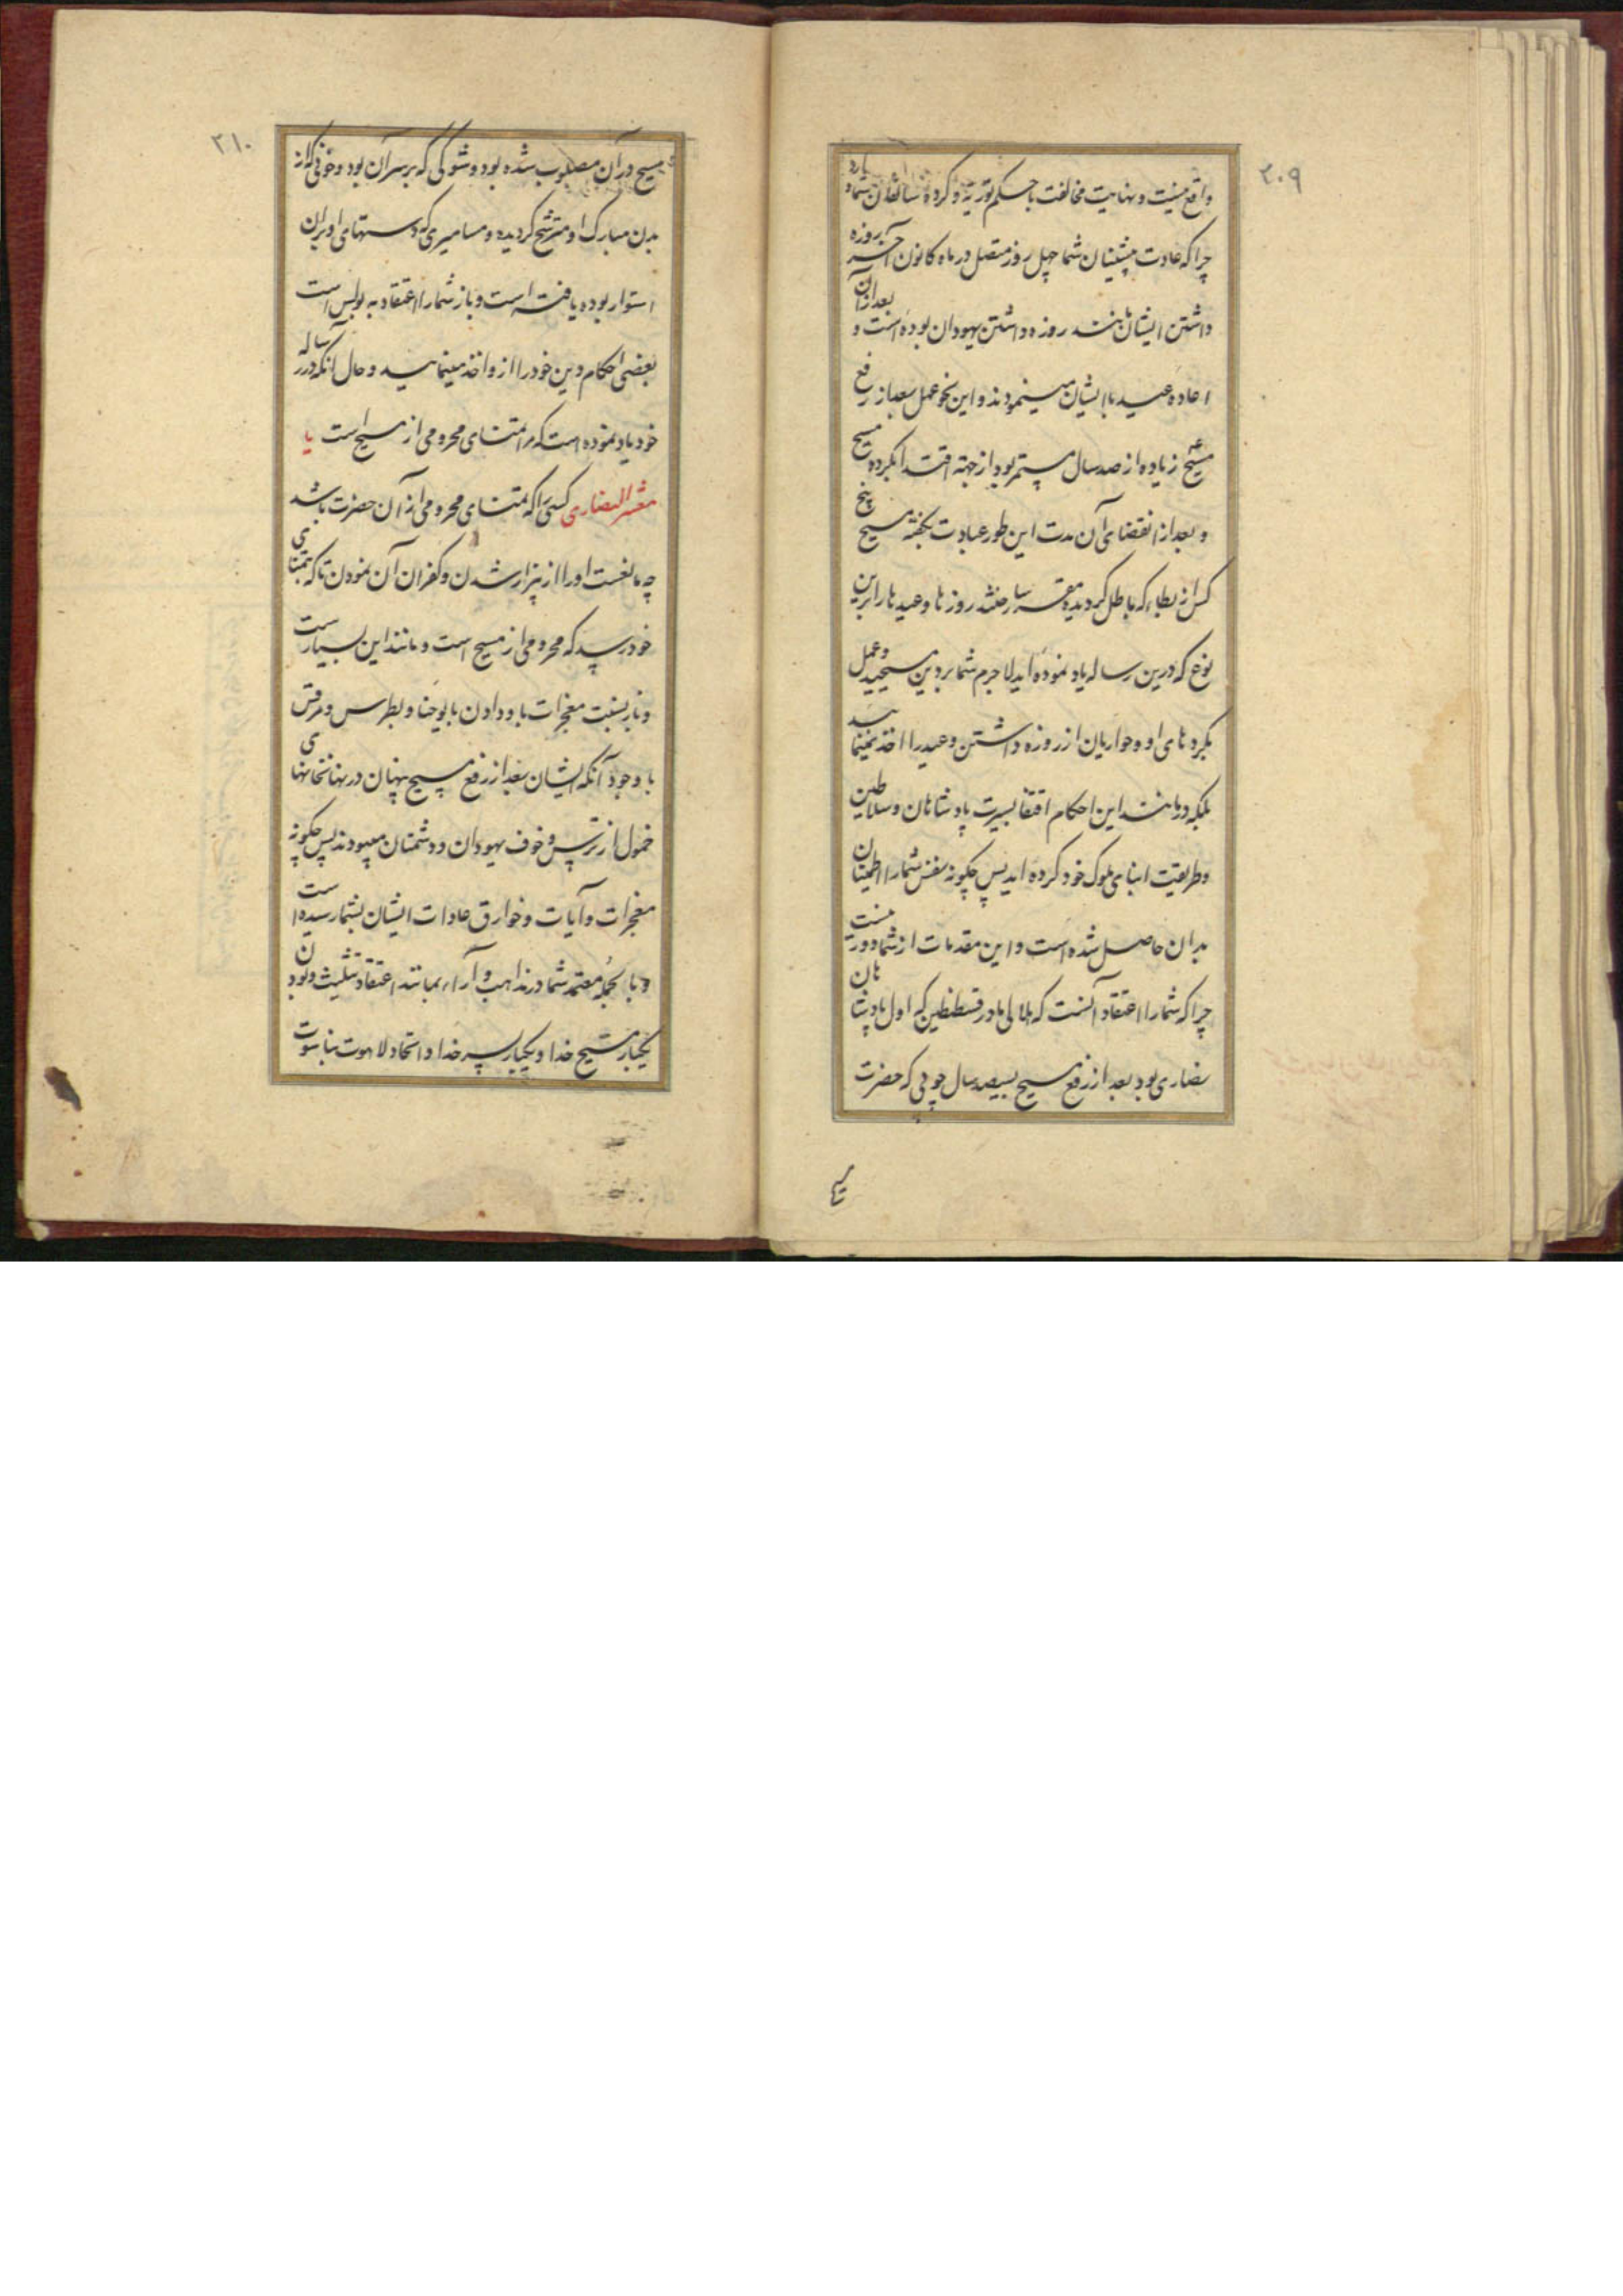 ۲۰۹
واقع نیست و نهایت مخالفت با حکم توریة و کرده سالفان شما دارد
چرا که عادت پیشینیان شما چهل روز متصل در ماه کانون آخر روزه
داشتن ایشان مانند روزه داشتن یهودان بوده است و بعد از آن
اعاده عید با ایشان مینمودند و این نحو عمل بعد از رفع
مسیح زیاده از صد سال مستمر بود از جهة اقتدا بکرده مسیح
و بعد از انقضای آن مدت این طور عبادت بگفته مسیح پنج
کس از بطاء که باطل گردیده مقرر ساختند روزها و عیدها را برین
نوع که درین رساله یاد نموده اید لاجرم شما بر دین مسیحید و عمل
بکرد های او و حواریان از روزه داشتن و عید را اخذ نمینمایید
بلکه در مانند این احکام اقتفا بسیرت پادشاهان و سلاطین
و طریقت ابنای ملوک خود کرده اید پس چگونه نفس شما را اطمینان
بدان حاصل شده است و این مقدمات از شما دور نیست
چرا که شما را اعتقاد آنست که هلالی مادر قسطنطین که اول پادشاهان
نصاری بود بعد از رفع مسیح بسیصد سال چوبی که حضرت
مسیح
۲۱۰
مسیح در آن مصلوب شده بود و شوکی که بر سر آن بود و خونی که از
بدن مبارک او مترشح گردیده و مسامیری که دستهای او بران
استوار بوده یافته است و باز شما را اعتقاد به بولس است
بعضی احکام دین خود را از و اخذ مینمایید و حال آنکه در رساله
خود یاد نموده است که مرا تمنای محرومی از مسیح است یا
معشر النصاری کسی را که تمنای محرومی از آن حضرت باشد
چه مانعست او را از بیزار شدن و کفران آن نمودن تا که بتمنای
خود رسد که محرومی از مسیح است و مانند این بسیار است
و باز نسبت معجزات باو دادن یا بیوحنا و بطرس و مرقس
با وجود آنکه ایشان بعد از رفع مسیح پنهان در نهانخانهای
خمول از ترس و خوف یهودان و دشمنان میبودند پس چگونه
معجزات و آیات و خوارق عادات ایشان بشما رسیده است
و بالجمله معتمد شما در مذاهب و آراء بمانند اعتقاد تثلیث و بودن
یکبار مسیح خدا و یکبار پسر خدا و اتحاد لاهوت بناسوت